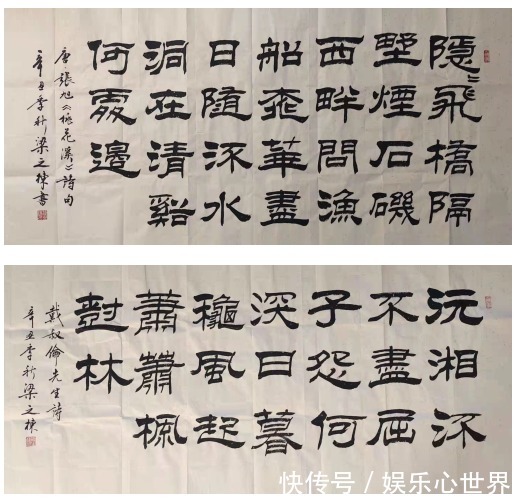 隱〻飛橋隔
野煙石磯
西畔問漁
船桃華盡
日隨流水
洞在清谿
何處邊
唐張旭《桃花溪》詩句
辛丑季秋梁之棟書
沅湘流
不盡屈
子怨何
深日暮
龝風起
蕭蕭楓
樹林
戴叔倫先生詩
辛丑季秋梁之棟
快传号 / 娱乐心世界